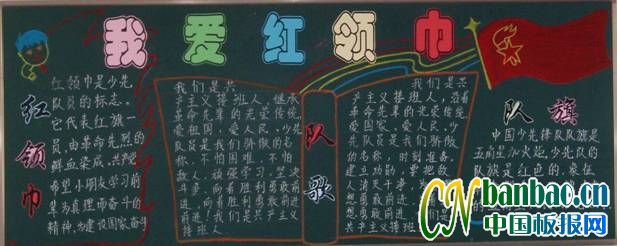 我爱红领巾
红领巾
红领巾是少先
队员的标志。
它代表红旗一
角,由革命先烈的
鲜血染成,共产党
希望小朋友学习前
辈为真理而奋斗的
精神,为建设国家奋斗
队歌
我们是共
产主义接班人,继承
革命先辈的光荣传统,
爱祖国,爱人民,少先
队员是我们骄傲的名
称,不怕困难,不怕
敌人,顽强学习,坚决
斗争,向着胜利勇敢前
进,向着胜利勇敢前进
前进!我们是共产主义
接班人
我们是共
产主义接班人,沿着
革命先辈的光荣路程
爱国家,爱人民,少
先队员是我们骄傲的
名称,时刻准备,
建立功勋,要把敌
人消灭干净,为
想勇敢前进
想勇敢前进前进
我们是共产主义
接班人
队旗
中国少先锋队队旗是
五角星加火炬,少先队的
队旗是红色的,象征
CNbanbao.cn
中国板报网